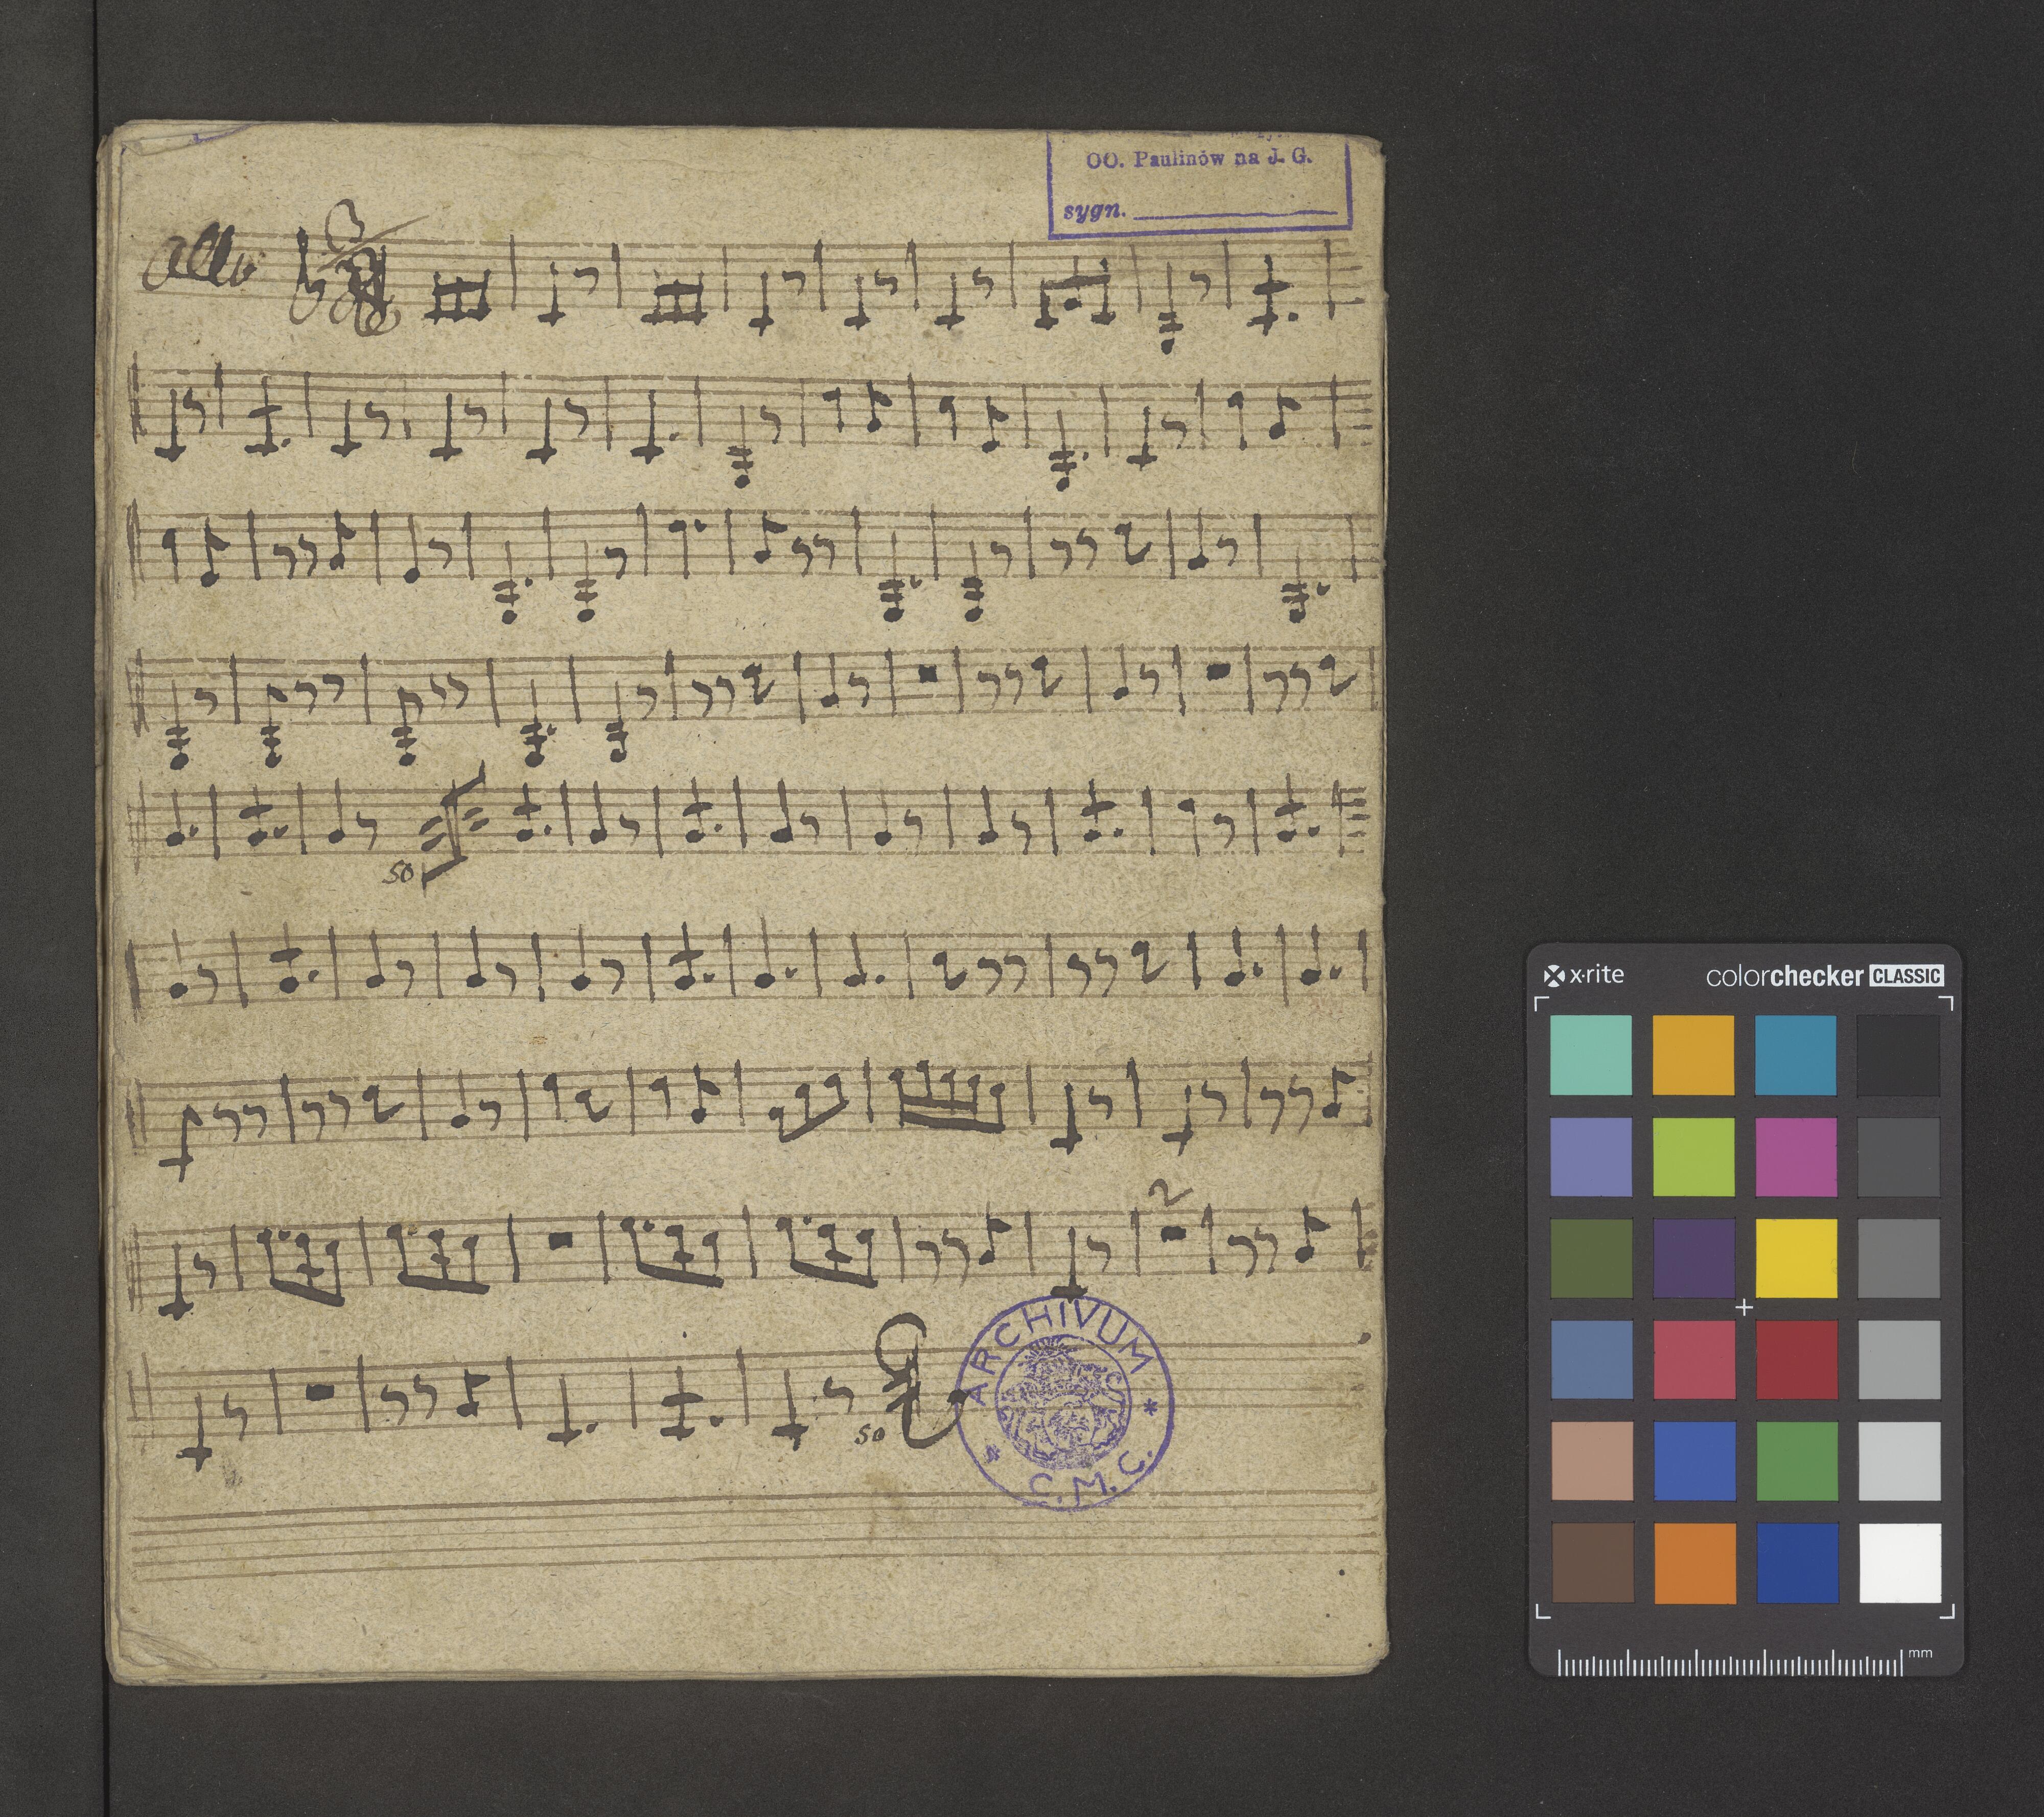 OO. Paulinów na J. G.
sygn.
Allo
50
2
50
ARCHIVUM
* C.M.C. *
x-rite
colorchecker CLASSIC
mm